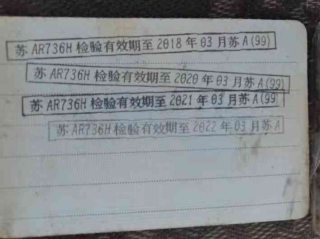 苏 AR736H 检验有效期至 2018 年 03 月苏 A(99)
苏 AR736H 检验有效期至 2020 年 03 月苏 A(99)
苏 AR736H 检验有效期至 2021 年 03 月苏 A(99)
苏 AR736H 检验有效期至 2022 年 03 月苏 A